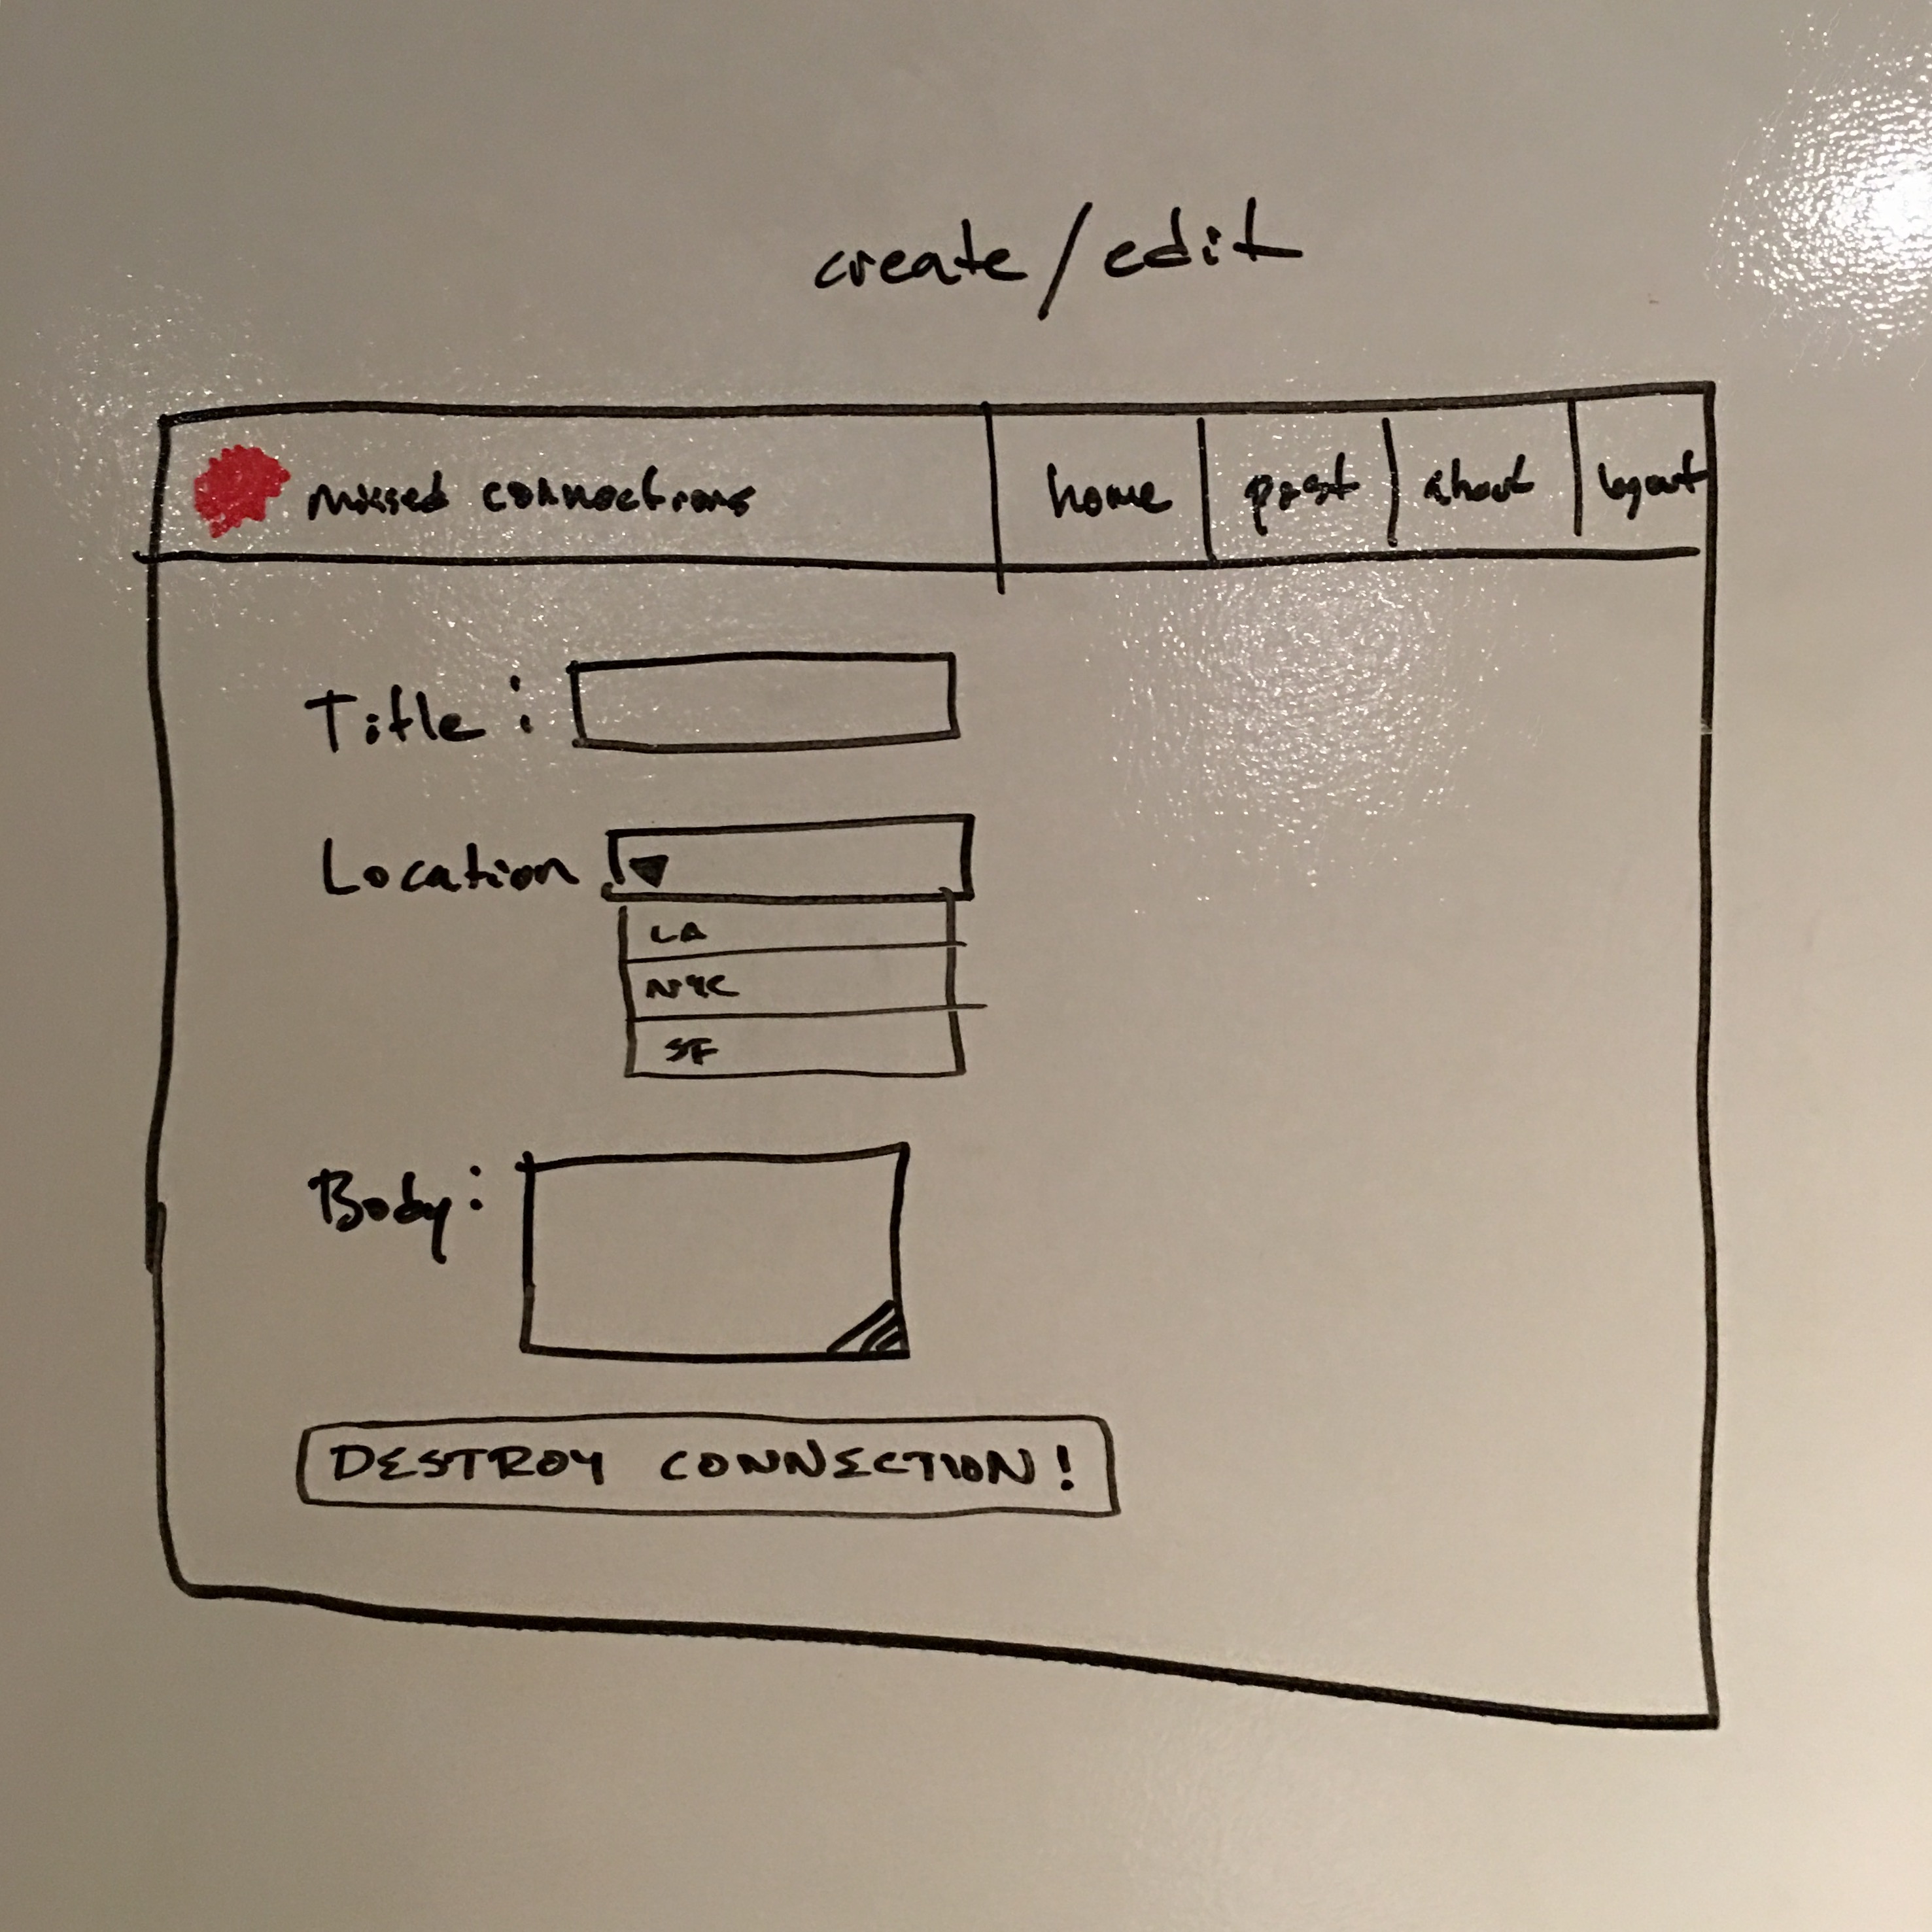 create/edit
missed connections home post about logout
Title:
Location
LA
NYC
SF
Body:
DESTROY CONNECTION!